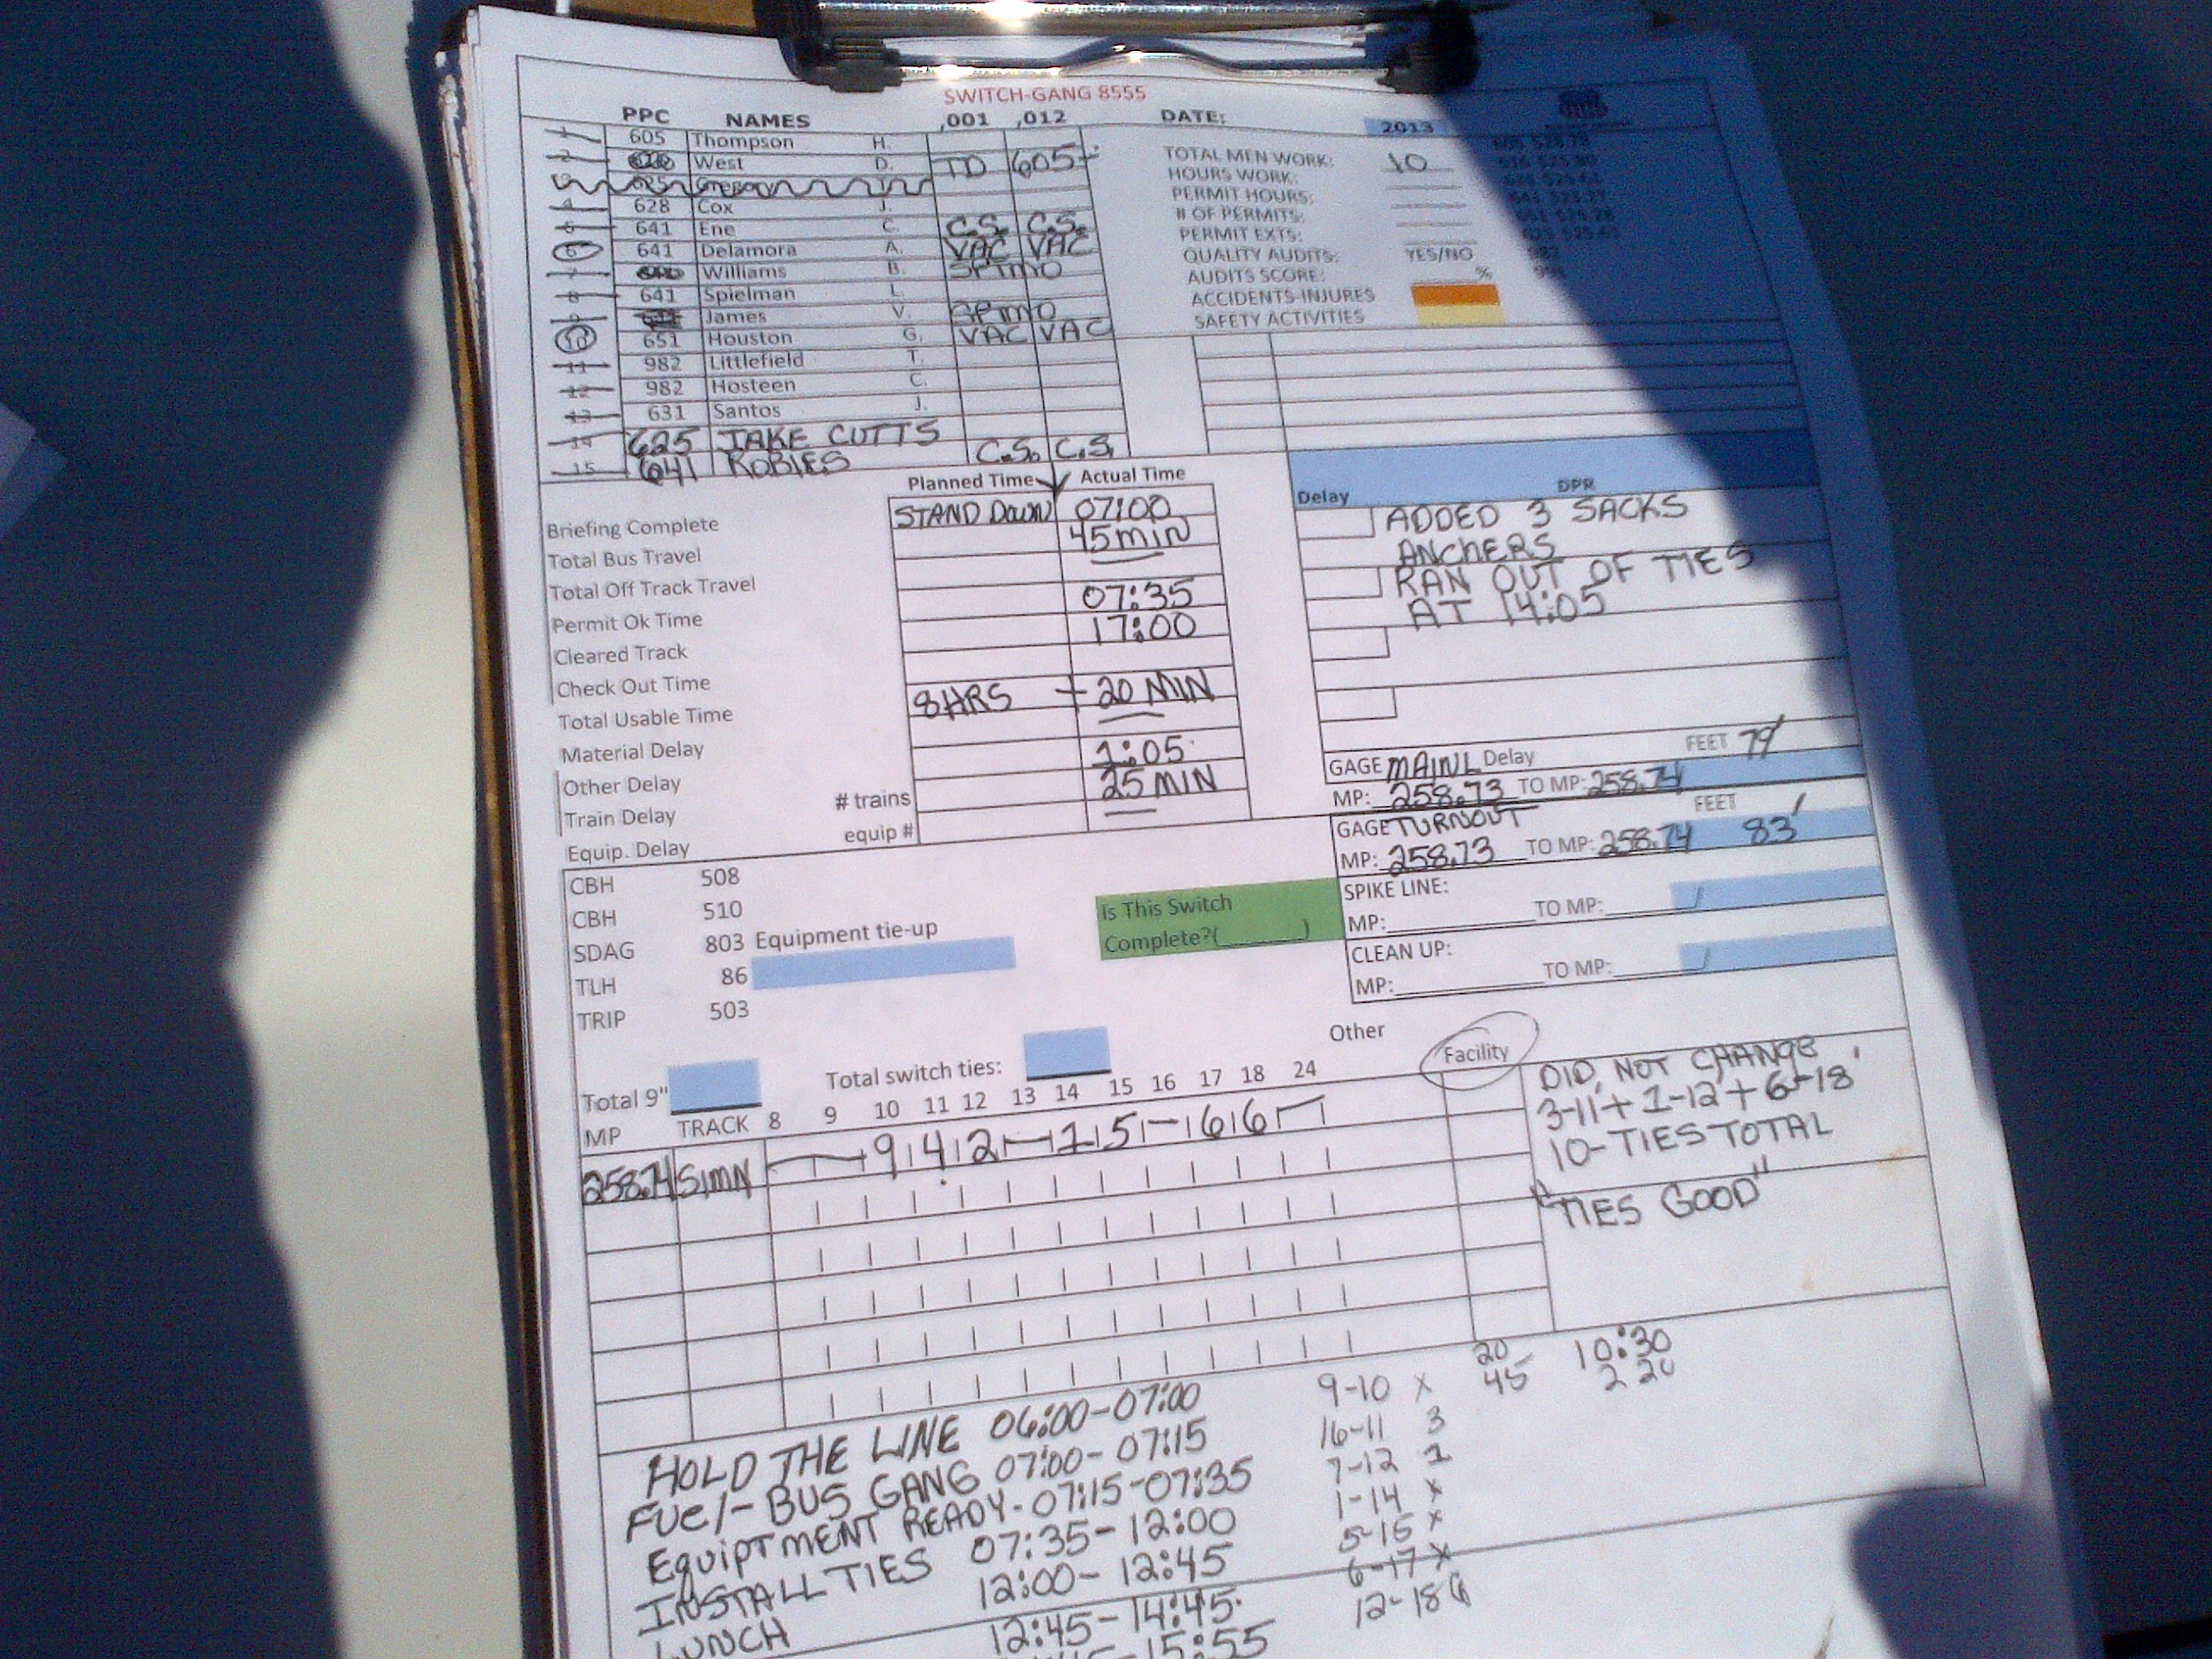 SWITCH-GANG 8555
PPC NAMES ,001 ,012 DATE: 2013
1 605 Thompson H.
2 West D. TD 605
625 Gregory
4 628 Cox J.
5 641 Ene C. C.S. C.S.
6 641 Delamora A. VAC VAC
7 Williams B.
8 641 Spielman L.
9 James V.
10 651 Houston G. VAC VAC
11 982 Littlefield T.
12 982 Hosteen C.
13 631 Santos J.
14 625 JAKE CUTTS
15 641 ROBLES C.S. C.S.
TOTAL MEN WORK: 10
HOURS WORK:
PERMIT HOURS:
# OF PERMITS:
PERMIT EXTS:
QUALITY AUDITS: YES/NO
AUDITS SCORE: %
ACCIDENTS-INJURES
SAFETY ACTIVITIES
Planned Time Actual Time
Briefing Complete STAND DOWN 07:00
Total Bus Travel 45 MIN
Total Off Track Travel
Permit Ok Time 07:35
Cleared Track 17:00
Check Out Time
Total Usable Time 8 HRS + 20 MIN
Material Delay
Other Delay 1:05
Train Delay # trains 25 MIN
Equip. Delay equip #
Delay DPR
ADDED 3 SACKS
ANCHERS
RAN OUT OF TIES
AT 14:05
GAGE MAINL Delay FEET 79'
MP: 258.73 TO MP: 258.74
GAGE TURNOUT FEET
MP: 258.73 TO MP: 258.74 83'
SPIKE LINE:
MP: TO MP: /
CLEAN UP:
MP: TO MP: /
CBH 508
CBH 510
SDAG 803 Equipment tie-up
TLH 86
TRIP 503
Is This Switch
Complete?( )
Total 9" Total switch ties: Other Facility
MP TRACK 8 9 10 11 12 13 14 15 16 17 18 24
258.74 S1MN 9 4 2 1 5 6 6
DID NOT CHANGE
3-11'+ 1-12'+ 6-18'
10-TIES TOTAL
"TIES GOOD"
HOLD THE LINE 06:00-07:00
FUEL-BUS GANG 07:00-07:15
EQUIPTMENT READY-07:15-07:35
INSTALL TIES 07:35-12:00
LUNCH 12:00-12:45
12:45-14:45
15:55
9-10 x
16-11 3
7-12 1
1-14 x
5-15 x
6-17 x
12-18 6
20
45
10:30
2 20